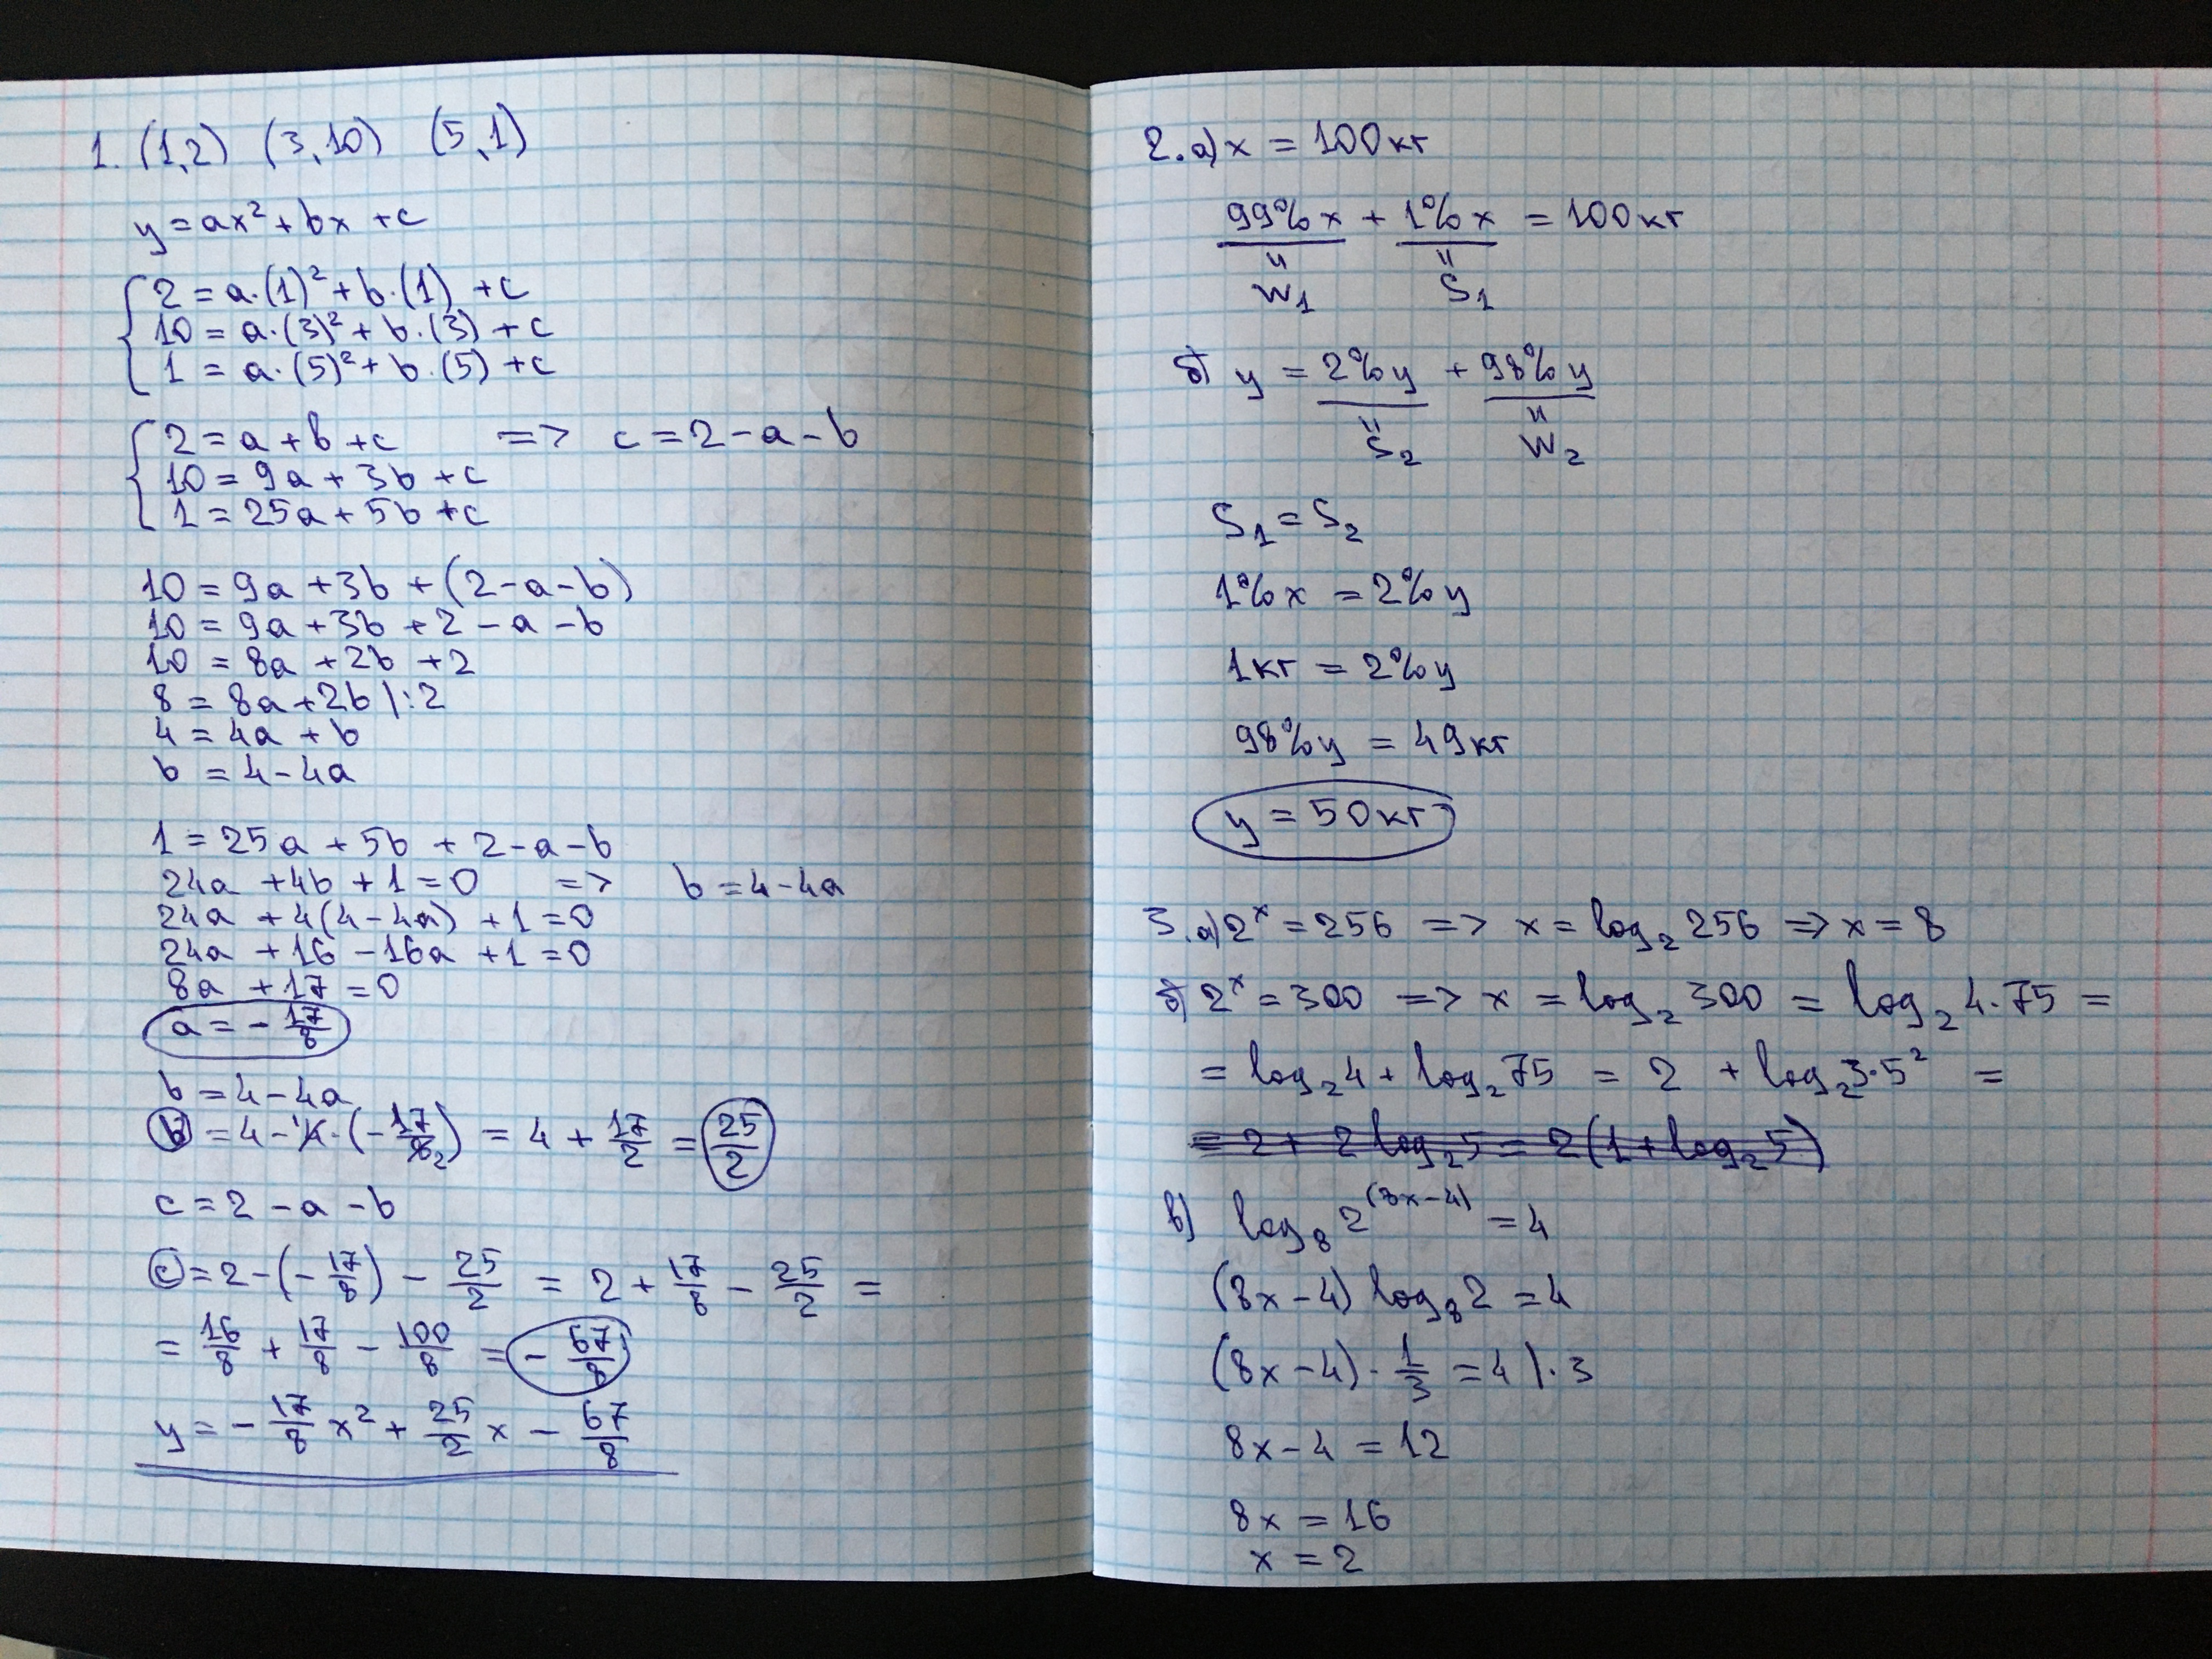 1. (1,2) (3,10) (5,1)
y = ax² + bx + c
2 = a·(1)² + b·(1) + c
10 = a·(3)² + b·(3) + c
1 = a·(5)² + b·(5) + c
2 = a + b + c => c = 2 - a - b
10 = 9a + 3b + c
1 = 25a + 5b + c
10 = 9a + 3b + (2 - a - b)
10 = 9a + 3b + 2 - a - b
10 = 8a + 2b + 2
8 = 8a + 2b |:2
4 = 4a + b
b = 4 - 4a
1 = 25a + 5b + 2 - a - b
24a + 4b + 1 = 0 => b = 4 - 4a
24a + 4(4 - 4a) + 1 = 0
24a + 16 - 16a + 1 = 0
8a + 17 = 0
a = - 17/8
b = 4 - 4a
b = 4 - 4·(- 17/8 2) = 4 + 17/2 = 25/2
c = 2 - a - b
c = 2 - (- 17/8) - 25/2 = 2 + 17/8 - 25/2 =
= 16/8 + 17/8 - 100/8 = - 67/8
y = - 17/8 x² + 25/2 x - 67/8
2. а) x = 100кг
99% x + 1% x = 100кг
W₁ S₁
б) y = 2% y + 98% y
S₂ W₂
S₁ = S₂
1% x = 2% y
1кг = 2% y
98% y = 49кг
y = 50кг
3. а) 2ˣ = 256 => x = log₂ 256 => x = 8
б) 2ˣ = 300 => x = log₂ 300 = log₂ 4·75 =
= log₂ 4 + log₂ 75 = 2 + log₂ 3·5² =
= 2 + 2 log₂ 5 = 2(1 + log₂ 5)
в) log₈ 2^(8x-4) = 4
(8x - 4) log₈ 2 = 4
(8x - 4) · 1/3 = 4 |·3
8x - 4 = 12
8x = 16
x = 2